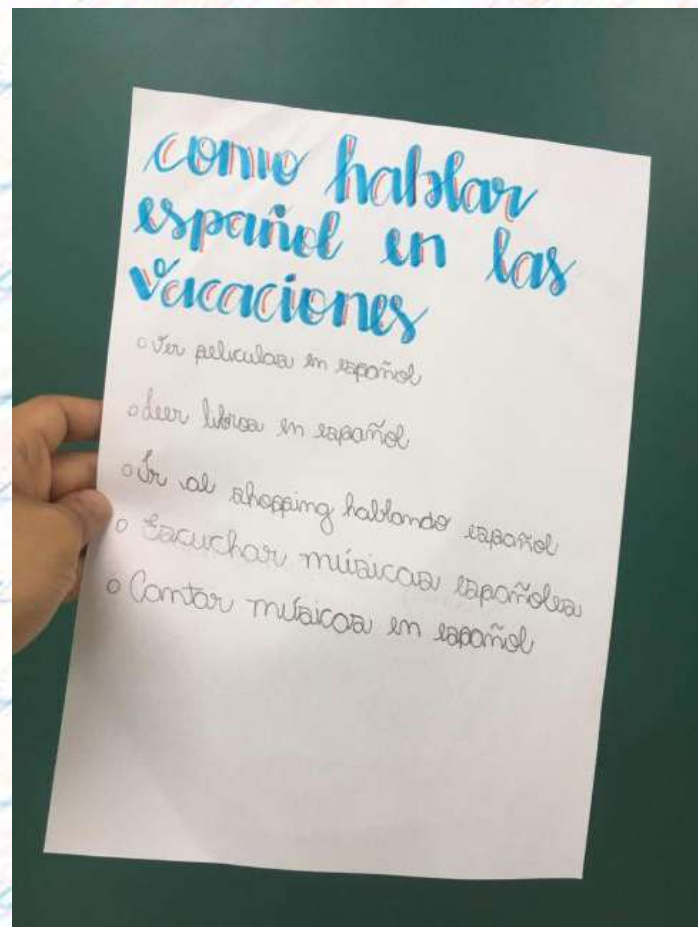 como hablar
español en las
vacaciones
o Ver peliculas en español
o Leer libros en español
o Ir al shopping hablando español
o Escuchar músicas españolas
o Cantar músicas en español